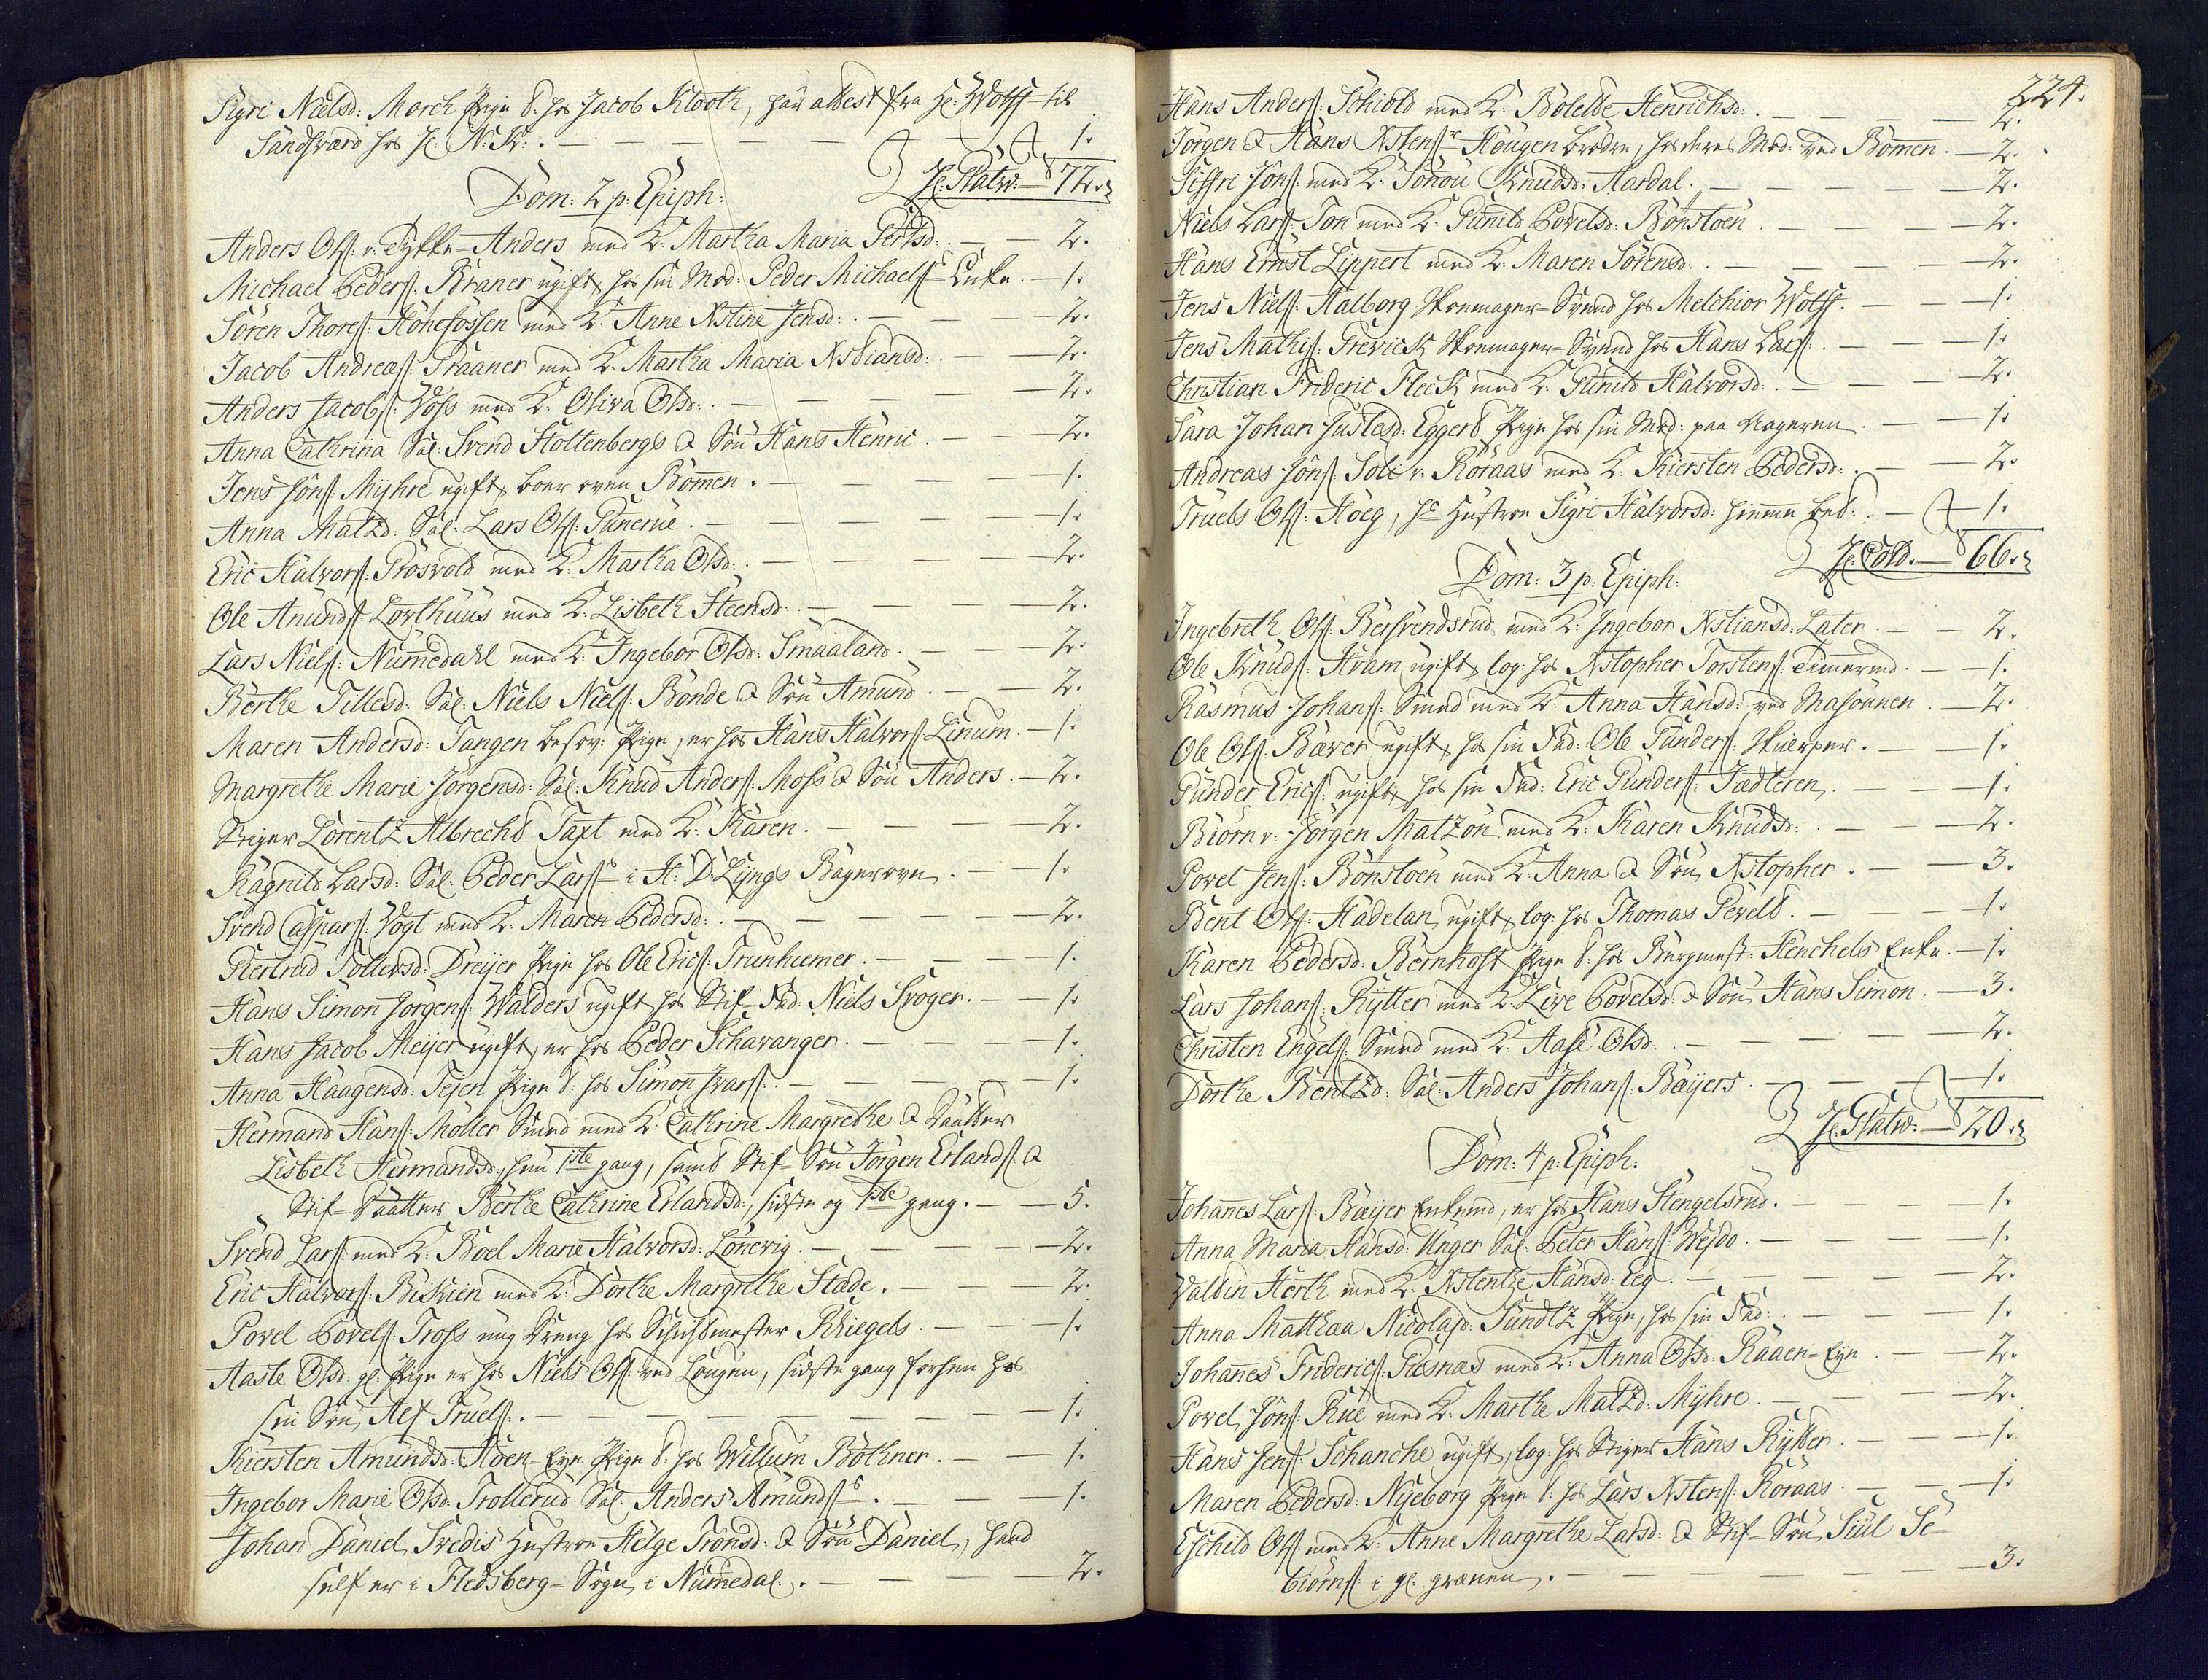 Sigri Nielsd: March Pige t: hos Jacob Klooth, har attest fra Hr: Wolff til
Sandsværd hos H: N: K: . — 1.
H: Platw: — 72.
Dom: 2 p: Epiph:
Anders Ols: v: Tykke-Anders med K: Martha Maria Pertsd: . — 2.
Michael Peders: Braner ugift, hos sin Mod: Peder Michaels: Enke. — 1.
Sören Thores: Hönefössen med K: Anne Xstine Jensd: . — 2.
Jacob Andreas: Praaner med K: Martha Maria Xstiansd: . — 2.
Anders Jacobs: Voss med K: Oliva Olsd: . — 2.
Anna Cathrina Sal: Svend Stoltenbergs & Sön Hans Henric . — 2.
Jens Jöns: Myhre ugift, boer oven Bommen . — 1.
Anna Matzd: Sal: Lars Ols: Gunerue . — 1.
Eric Halvors: Prosvold med K: Martha Olsd: . — 2.
Ole Anunds: Lorthuus med K: Lisbeth Steensd: . — 2.
Lars Niels: Nummedahl med K: Ingebor Olsd: Smaaland . — 2.
Berthe Tillesd: Sal: Niels Niels: Bonde & Sön Amund . — 2.
Maren Andersd: Tangen besov: Pige, er hos Hans Halvors: Linum . — 1.
Margrethe Marie Jörgensd: Sal: Knud Anders: Moss & Sön Anders . — 2.
Stiger Lorentz Albrecht Taxt med K: Karen . — 2.
Ragnild Larsd: Sal: Peder Lars: i H: D: Lyngs Bagerovn . — 1.
Svend Caspars: Vogt med K: Maren Pedersd: . — 2.
Giertrud Tollevsd: Dreijer Pige hos Ole Erics: Trunhiemer . — 1.
Hans Simon Jörgens: Walders ugift hos Stif-Fad: Niels Svoger . — 1.
Hans Jacob Meijer ugift, er hos Peder Schavanger . — 1.
Anna Haagensd: Tejen Pige t: hos Simon Ivars: . — 1.
Hermand Hans: Möller Smed med K: Cathrine Margrethe & Daatter
Lisbeth Hermandsd:, hun 1ste gang, samt Stif-Sön Jörgen Erlands: &
Stif-Daatter Berthe Cathrine Erlandsd:, sidste og 1ste gang . — 5.
Svend Lars: med K: Boel Marie Halvorsd: Lönevig . — 2.
Eric Halvors: Biskien med K: Dorthe Margrethe Stade . — 2.
Povel Povels: Tross ung Dreng hos Schichtmester Kriegels . — 1.
Aaste Olsd: gl: Pige er hos Niels Ols: ved Lougen, sidste gang forhen hos
sin Sön Alf Truels: . — 1.
Kiersten Amundsd: Höen-Eje Pige t: hos Willum Böthner . — 1.
Ingebor Marie Olsd: Trollerud Sal: Anders Amunds: . — 1.
Johan Daniel Svedis Hustroe Helge Tronsd: & Sön Daniel, hand
self er i Flesberg-Sogn i Nummedal . — 2.
224.
Hans Anders: Schiold med K: Bolette Henrichsd: . — 2.
Jörgen & Hans Xstens: Hougen brödre, hos deres Mod: ved Bommen . — 2.
Siffri Jöns: med K: Sönou Knudsd: Aardal . — 2.
Niels Lars: Ton med K: Gunild Povelsd: Bönstoen . — 2.
Hans Ernst Lippert med K: Maren Sörensd: . — 2.
Jens Niels: Aalborg Skoemager-Svend hos Melchior Wolff . — 1.
Jens Mathis: Trevick Skoemager-Svend hos Hans Lars: . — 1.
Christian Frideric Fleck med K: Gunild Halvorsd: . — 2.
Sara Johan Justasd: Eggert Pige hos sin Mod: paa Ageren . — 1.
Andreas Jöns: Soli v: Röraas med K: Kiersten Pedersd: . — 2.
Truels Ols: Höeg, hs: Hustroe Sigri Halvorsd: hiemme bet: . — 1.
H: Cold. — 66.
Dom: 3 p: Epiph:
Ingebreth Ols: Bersvendsrud med K: Ingebor Xstiansd: Later . — 2.
Ole Knuds: Hvam ugift, log: hos Xstopher Torstens: Timermd . — 1.
Rasmus Johans: Smed med K: Anna Hansd: ved Masovnen . — 2.
Ole Ols: Bæver ugift, hos sin Fad: Ole Gunders: Skierper . — 1.
Gunder Erics: ugift, hos sin Fad: Eric Gunders: Jædteren . — 1.
Biörn v: Jörgen Matzön med K: Karen Knudsd: . — 2.
Povel Jens: Bönstoen med K: Anna & Sön Xstopher . — 3.
Bent Ols: Hadelan ugift, log: hos Thomas Gevelt . — 1.
Karen Pedersd: Bernhoft Pige t: hos Burgmest: Henchels Enke . — 1.
Lars Johans: Rytter med K: Live Povelsd: & Sön Hans Simon . — 3.
Christen Engels: Smed med K: Aase Olsd: . — 2.
Dorthe Bentzd: Sal: Anders Johans: Bæijers . — 1.
H: Platw: — 20.
Dom: 4 p: Epiph:
Johannes Lars: Bæijer Enkemd, er hos Hans Stengelsrud . — 1.
Anna Maria Hansd: Unger Sal: Peter Hans: Wejdo . — 1.
Valdin Herth med K: Xstenthe Hansd: Eeg . — 2.
Anna Mathæa Nicolajsd: Sundtz Pige, hos sin Fad: . — 1.
Johannes Friderics: Giesnæs med K: Anna Olsd: Raaen-Eje . — 2.
Povel Jöns: Rue med K: Marthe Matzd: Myhre . — 2.
Hans Jens: Schanche ugift, log: hos Stiger Hans Rytter . — 1.
Maren Pedersd: Nyeborg Pige t: hos Lars Xstens: Röraas . — 1.
Eschild Ols: med K: Anne Margrethe Larsd: & Stif-Sön Siul Se-
biörns: i gl: grænen . — 3.